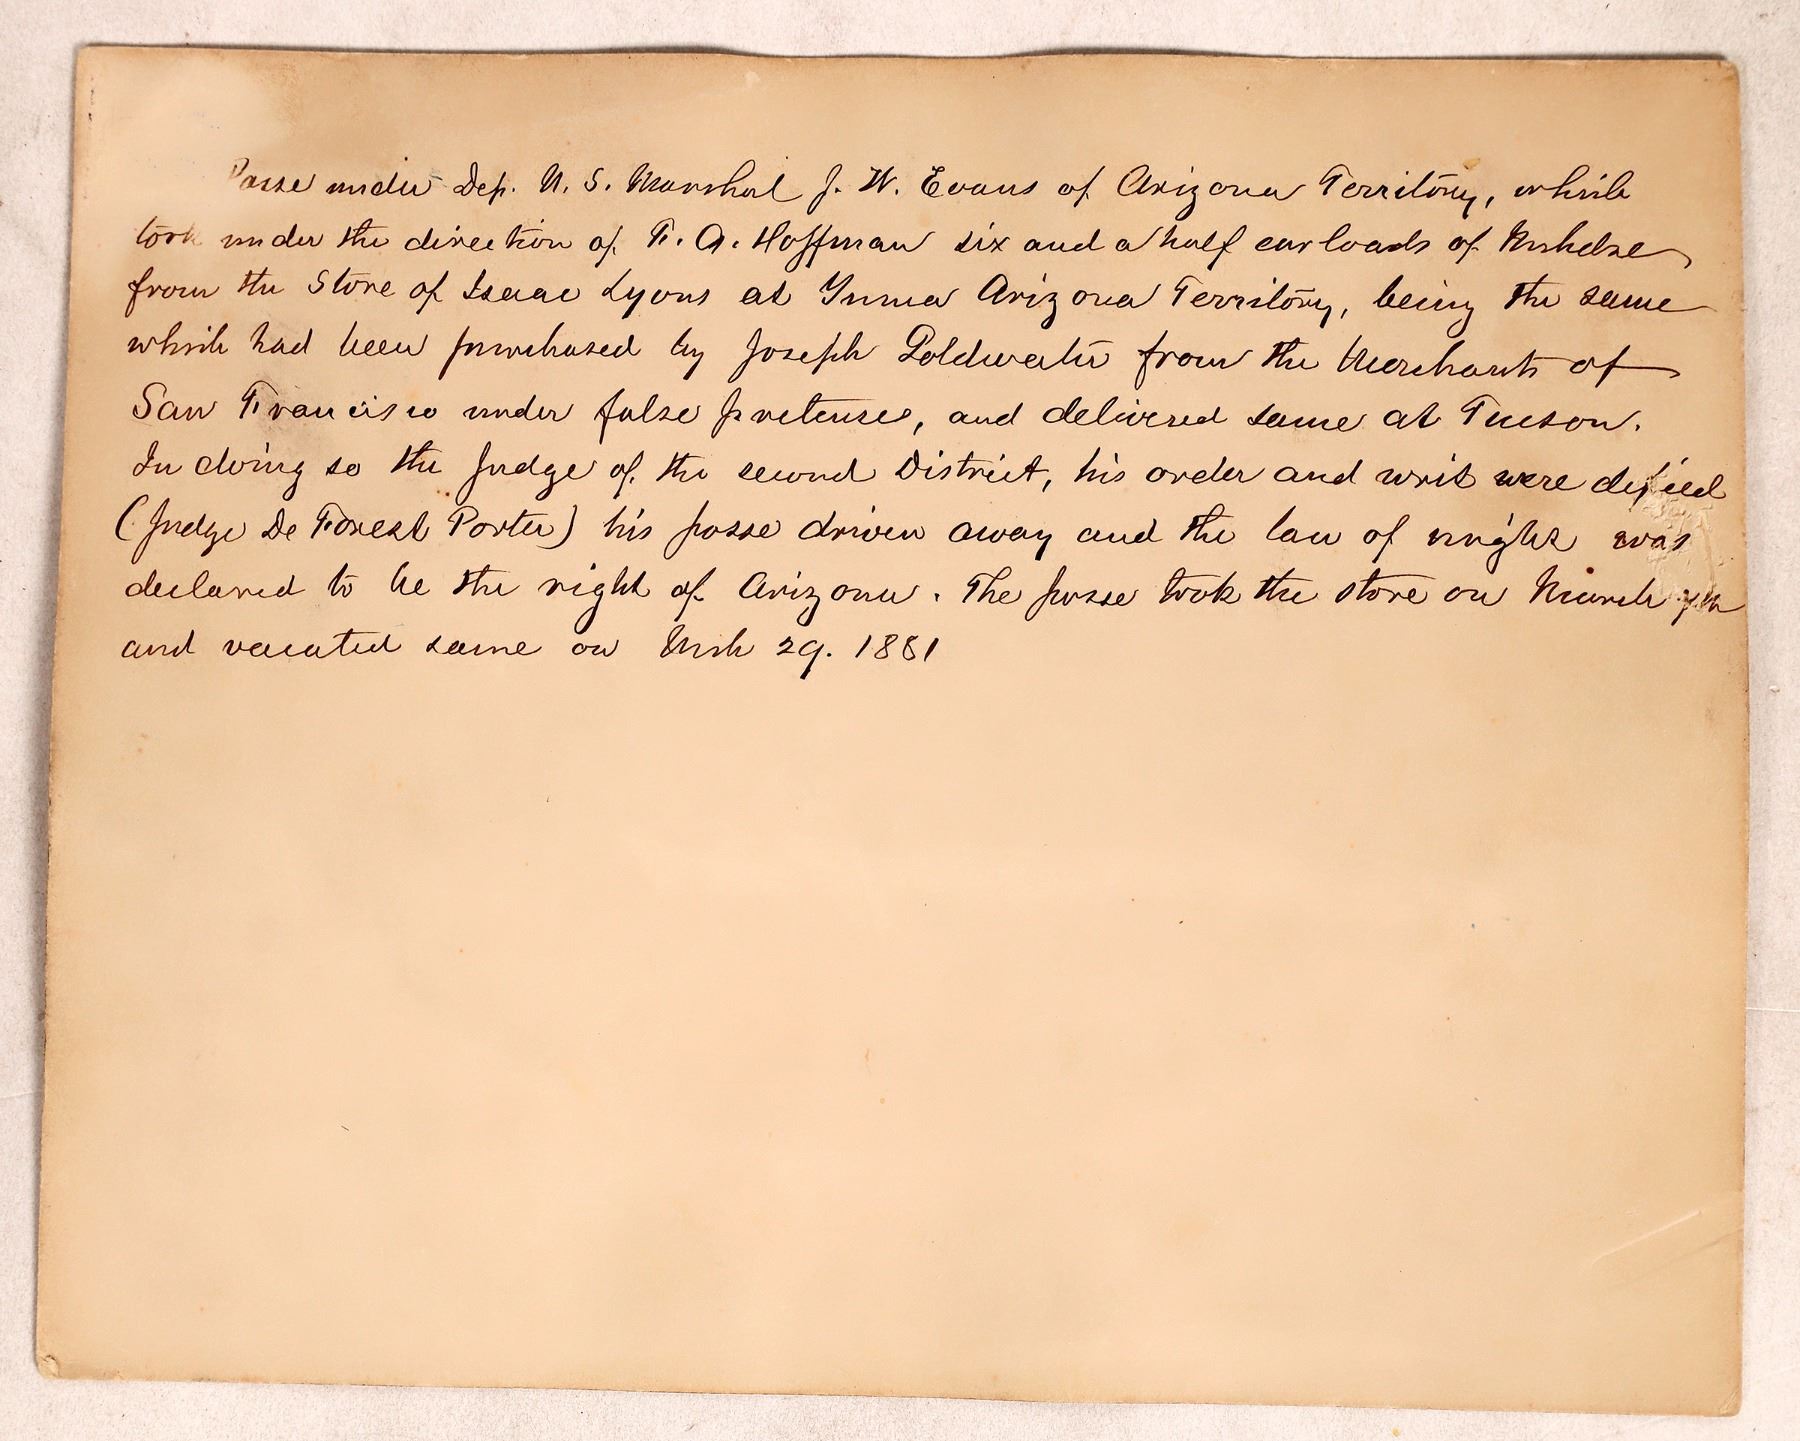 Posse under Dep. U. S. Marshal J. W. Evans of Arizona Territory, which
took under the direction of F. A. Hoffman six and a half carloads of Mchdse
from the Store of Isaac Lyons at Yuma Arizona Territory, being the same
which had been purchased by Joseph Goldwater from the Merchants of
San Francisco under false pretenses, and delivered same at Tucson.
In doing so the Judge of the second District, his order and writ were defied
(Judge De Forest Porter) his posse driven away and the law of might was
declared to be the right of Arizona. The posse took the store on March
and vacated same on Mch 29. 1881